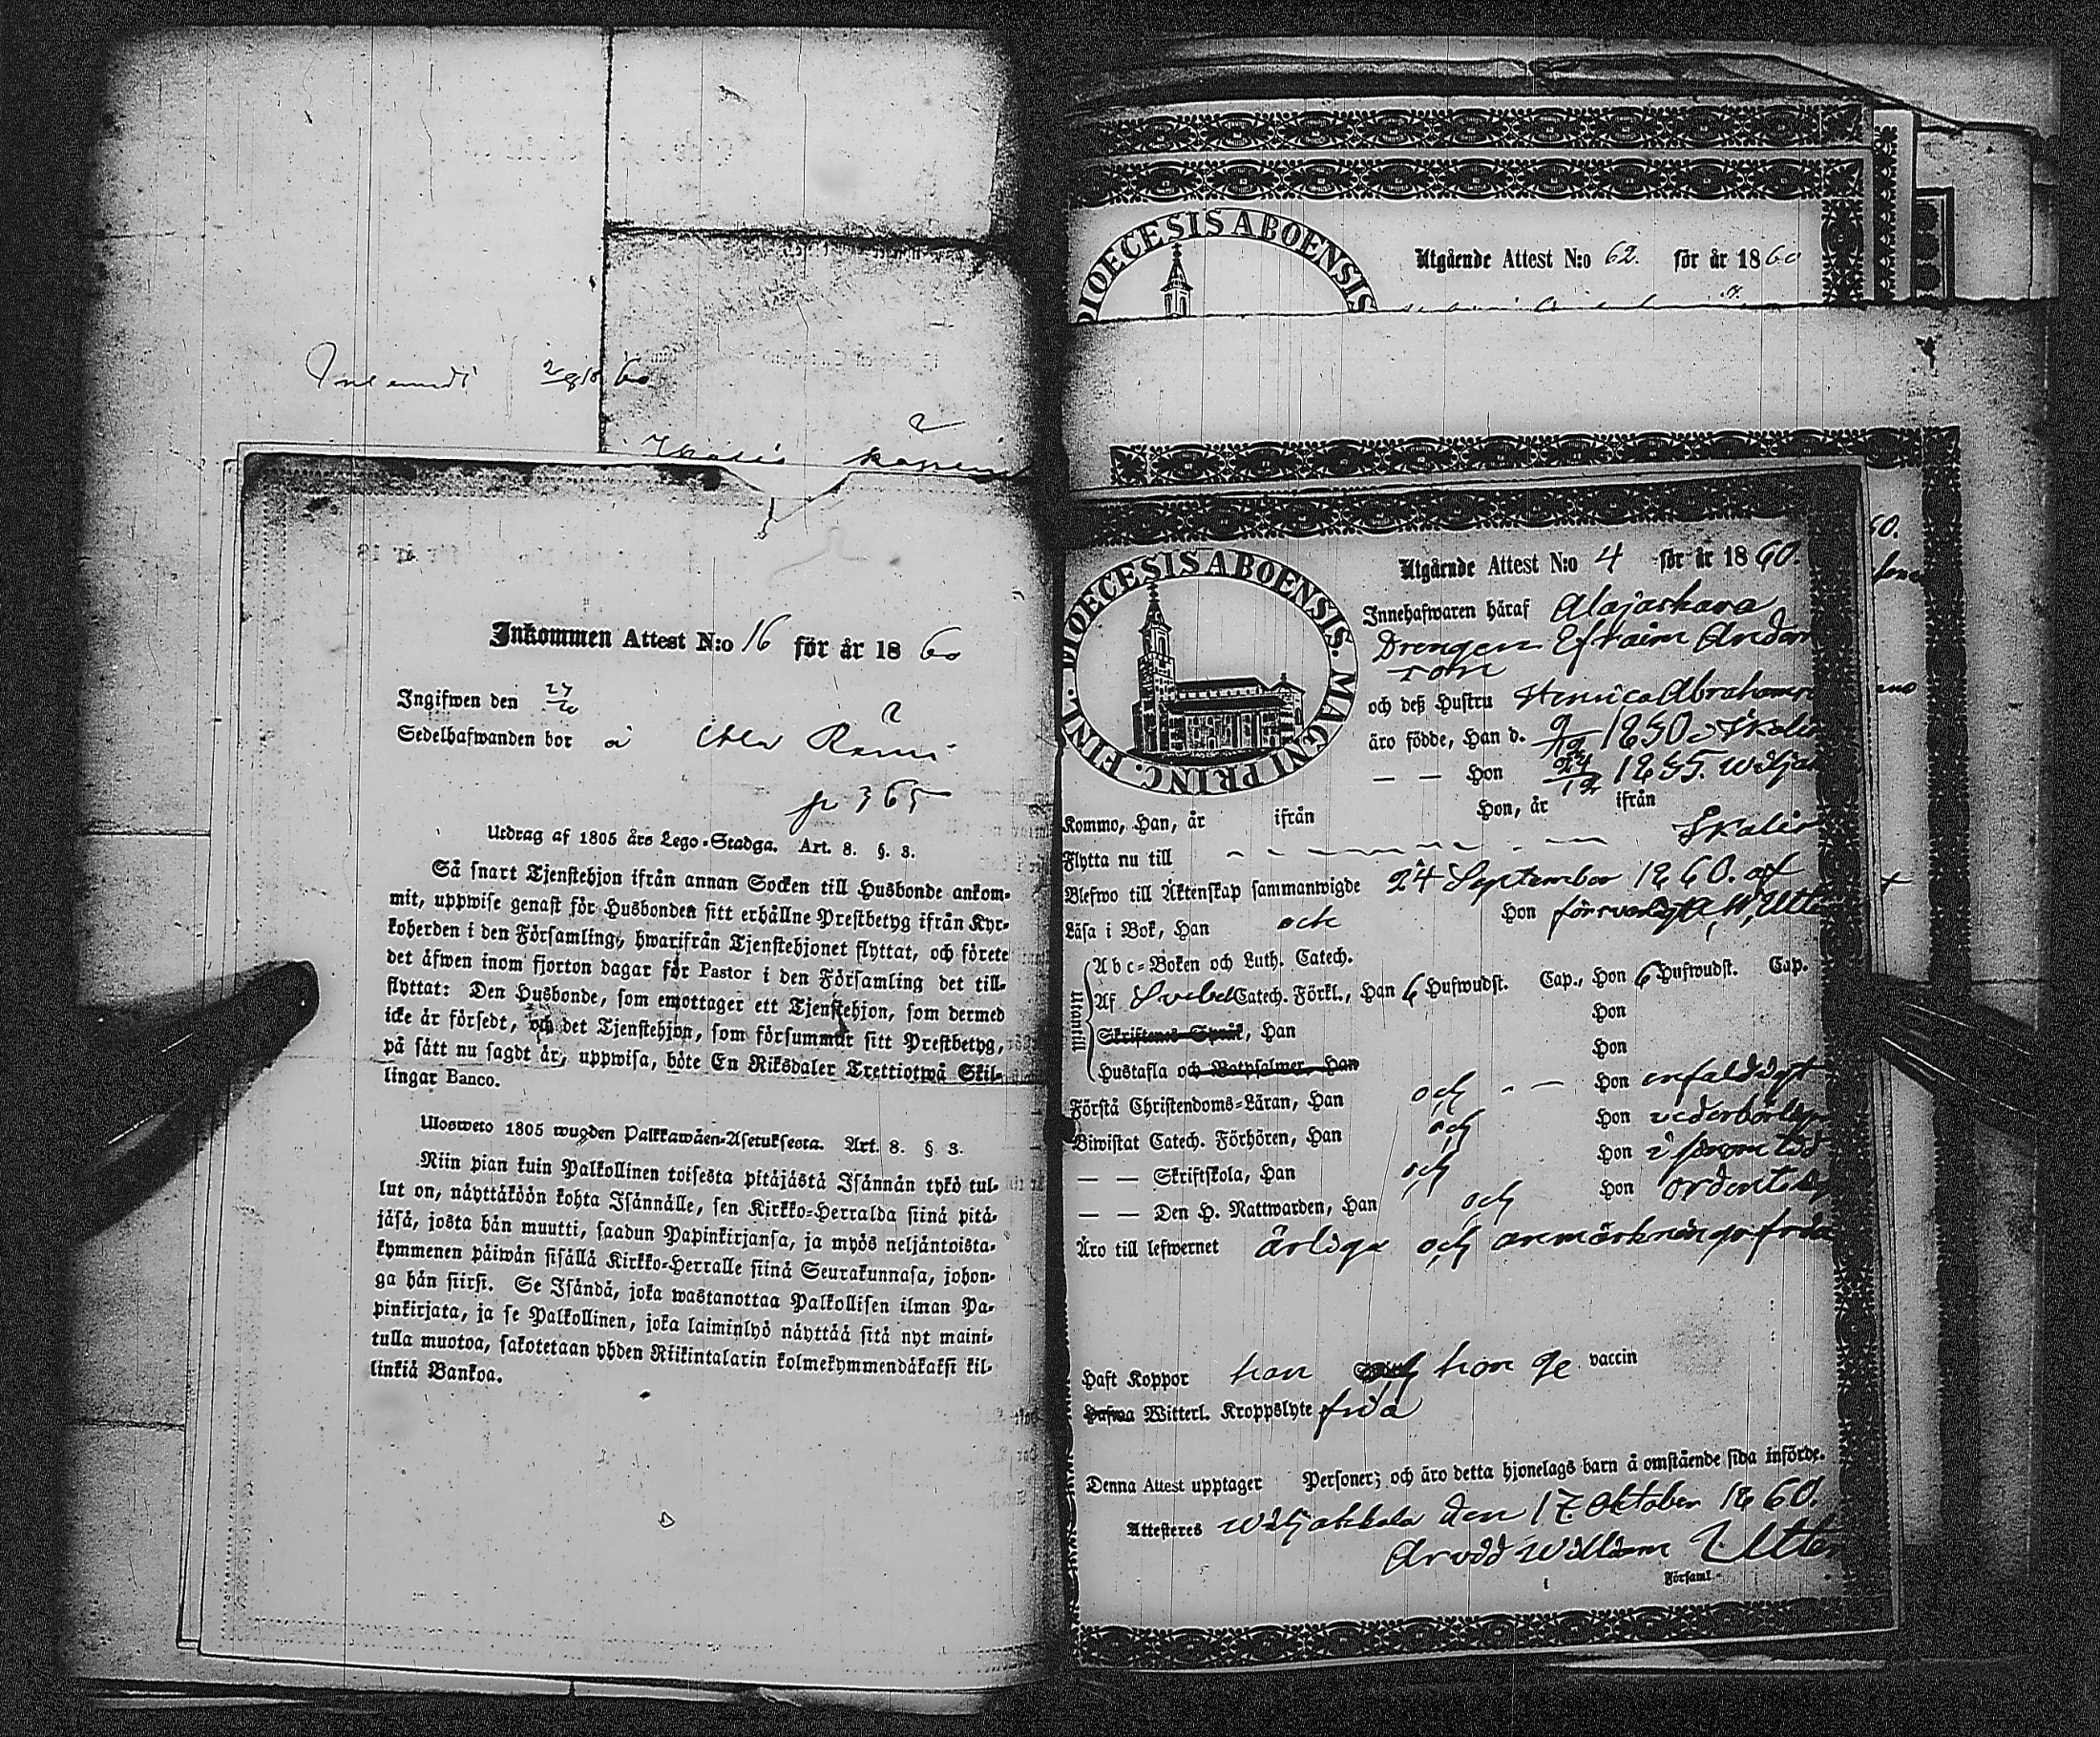 Inkommen Attest N:o 16 för år 1860
Ingifwen den 24/10
Sedelhafwanden bor å
p 365
Utdrag af 1805 års Lego-Stadga. Art. 8. §. 3.
Så snart Tjenstehjon ifrån annan Socken till Husbonde ankom-
mit, uppwise genast för Husbonden sitt erhållne Prestbetyg ifrån Kyr-
koherden i den Församling, hwarifrån Tjenstehjonet flyttat, och förete
det äfwen inom fjorton dagar för Pastor i den Församling det till-
flyttat: Den Husbonde, som emottager ett Tjenstehjon, som dermed
icke är försedt, och det Tjenstehjon, som försummar sitt Prestbetyg,
på sätt nu sagdt är, uppwisa, böte En Riksdaler Trettiotwå Skil-
lingar Banco.
Ulosweto 1805 wuoden Palkkawäen-Asetuksesta. Art. 8. § 3.
Niin pian kuin Palkollinen toisesta pitäjästä Isännän tykö tul-
lut on, näyttäköön kohta Isännälle, sen Kirkko-Herralda siinä pitä-
jäsä, josta hän muutti, saadun Papinkirjansa, ja myös neljäntoista-
kymmenen päiwän sisällä Kirkko-Herralle siinä Seurakunnasa, johon-
ga hän siirsi. Se Isändä, joka wastanottaa Palkollisen ilman Pa-
pinkirjata, ja se Palkollinen, joka laiminlyö näyttää sitä nyt maini-
tulla muotoa, sakotetaan yhden Riikintalarin kolmekymmendäkaksi kil-
linkiä Bankoa.
DIOECESIS ABOENSIS
Utgående Attest N:o 62. för år 1860
DIOECESIS ABOENSIS. MAGNI PRINC. FINL.
Utgående Attest N:o 4 för år 1860.
Innehafwaren häraf Alajaskara
Drengen Efraim Anders
son
och deß Hustru Henrica Abrahams
äro födde, Han d. 9/12 1830 Ikalis
— — Hon 24/12 1835. Wilja
Kommo, Han, år ifrån Hon, år ifrån
Flytta nu till Ikalis
Blefwo till Äktenskap sammanwigde 24 September 1860. af
Läsa i Bok, Han och Hon
Utantill
A b c-Boken och Luth. Catech.
Af Svebel Catech. Förkl., Han 6 Hufwudst. Cap., Hon 6 Hufwudst. Cap.
Skriftenes Språk, Han Hon
Hustafla och Botpsalmer, Han Hon
Förstå Christendoms-Läran, Han och - — Hon enfaldigt
Biwistat Catech. Förhören, Han och Hon vederbörligen
— — Skriftskola, Han och Hon
— — Den H. Nattwarden, Han och Hon ordentligt
Äro till lefwernet ärliga och anmärkningsfria
Haft Koppor han och hon ge vaccin
Hafwa Witterl. Kroppslyte fria
Denna Attest upptager Personer; och äro detta hjonelags barn å omstående sida införde.
Attesteres Wiljakkala den 17 Oktober 1860.
Arvid William
Församl.